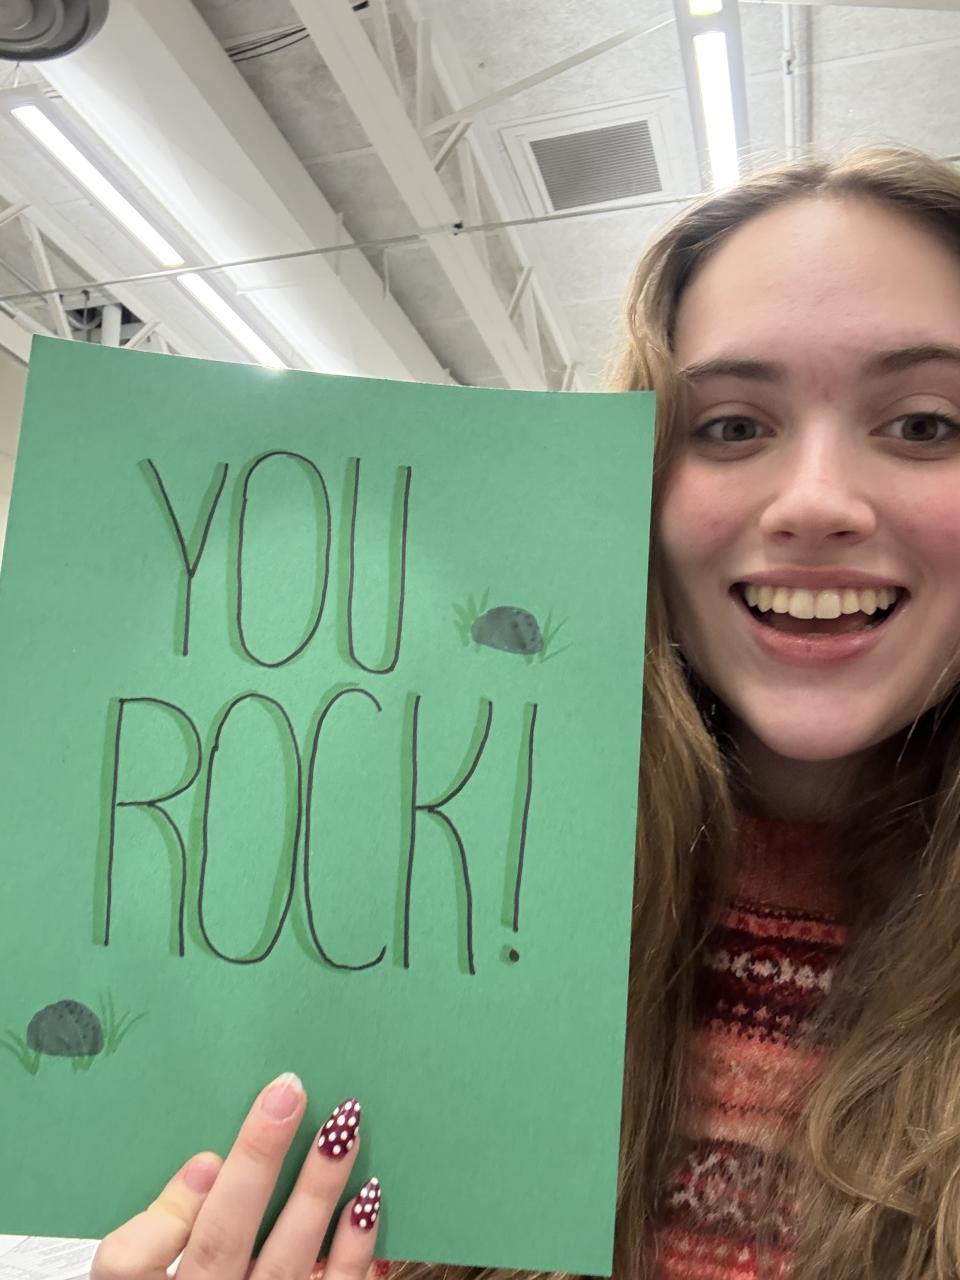 YOU
ROCK!